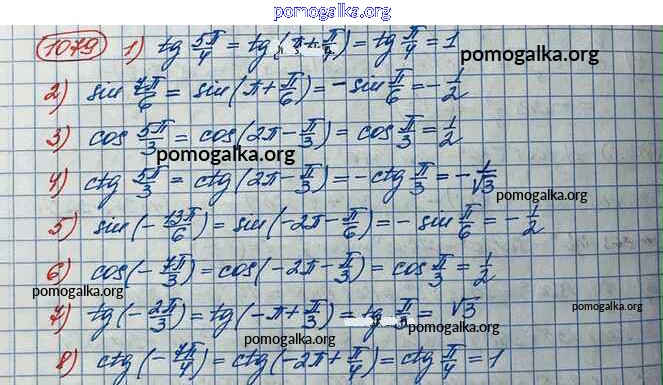 pomogalka.org
1079 1) tg 5π/4 = tg(π+π/4) = tg π/4 = 1
2) sin 7π/6 = sin(π+π/6) = -sin π/6 = -1/2
3) cos 5π/3 = cos(2π-π/3) = cos π/3 = 1/2
pomogalka.org
4) ctg 5π/3 = ctg(2π-π/3) = -ctg π/3 = -1/√3
pomogalka.org
5) sin(-13π/6) = sin(-2π-π/6) = -sin π/6 = -1/2
6) cos(-7π/3) = cos(-2π-π/3) = cos π/3 = 1/2
pomogalka.org
7) tg(-2π/3) = tg(-π+π/3) = tg π/3 = √3
pomogalka.org
pomogalka.org
8) ctg(-7π/4) = ctg(-2π+π/4) = ctg π/4 = 1
pomogalka.org